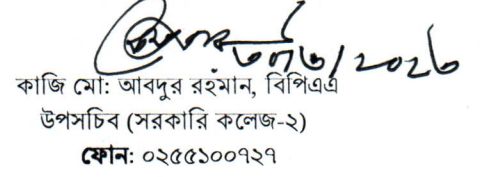 কাজি মো: আবদুর রহমান, বিপিএএ
উপসচিব (সরকারি কলেজ-২)
ফোন: ০২৫৫১০০৭২৭